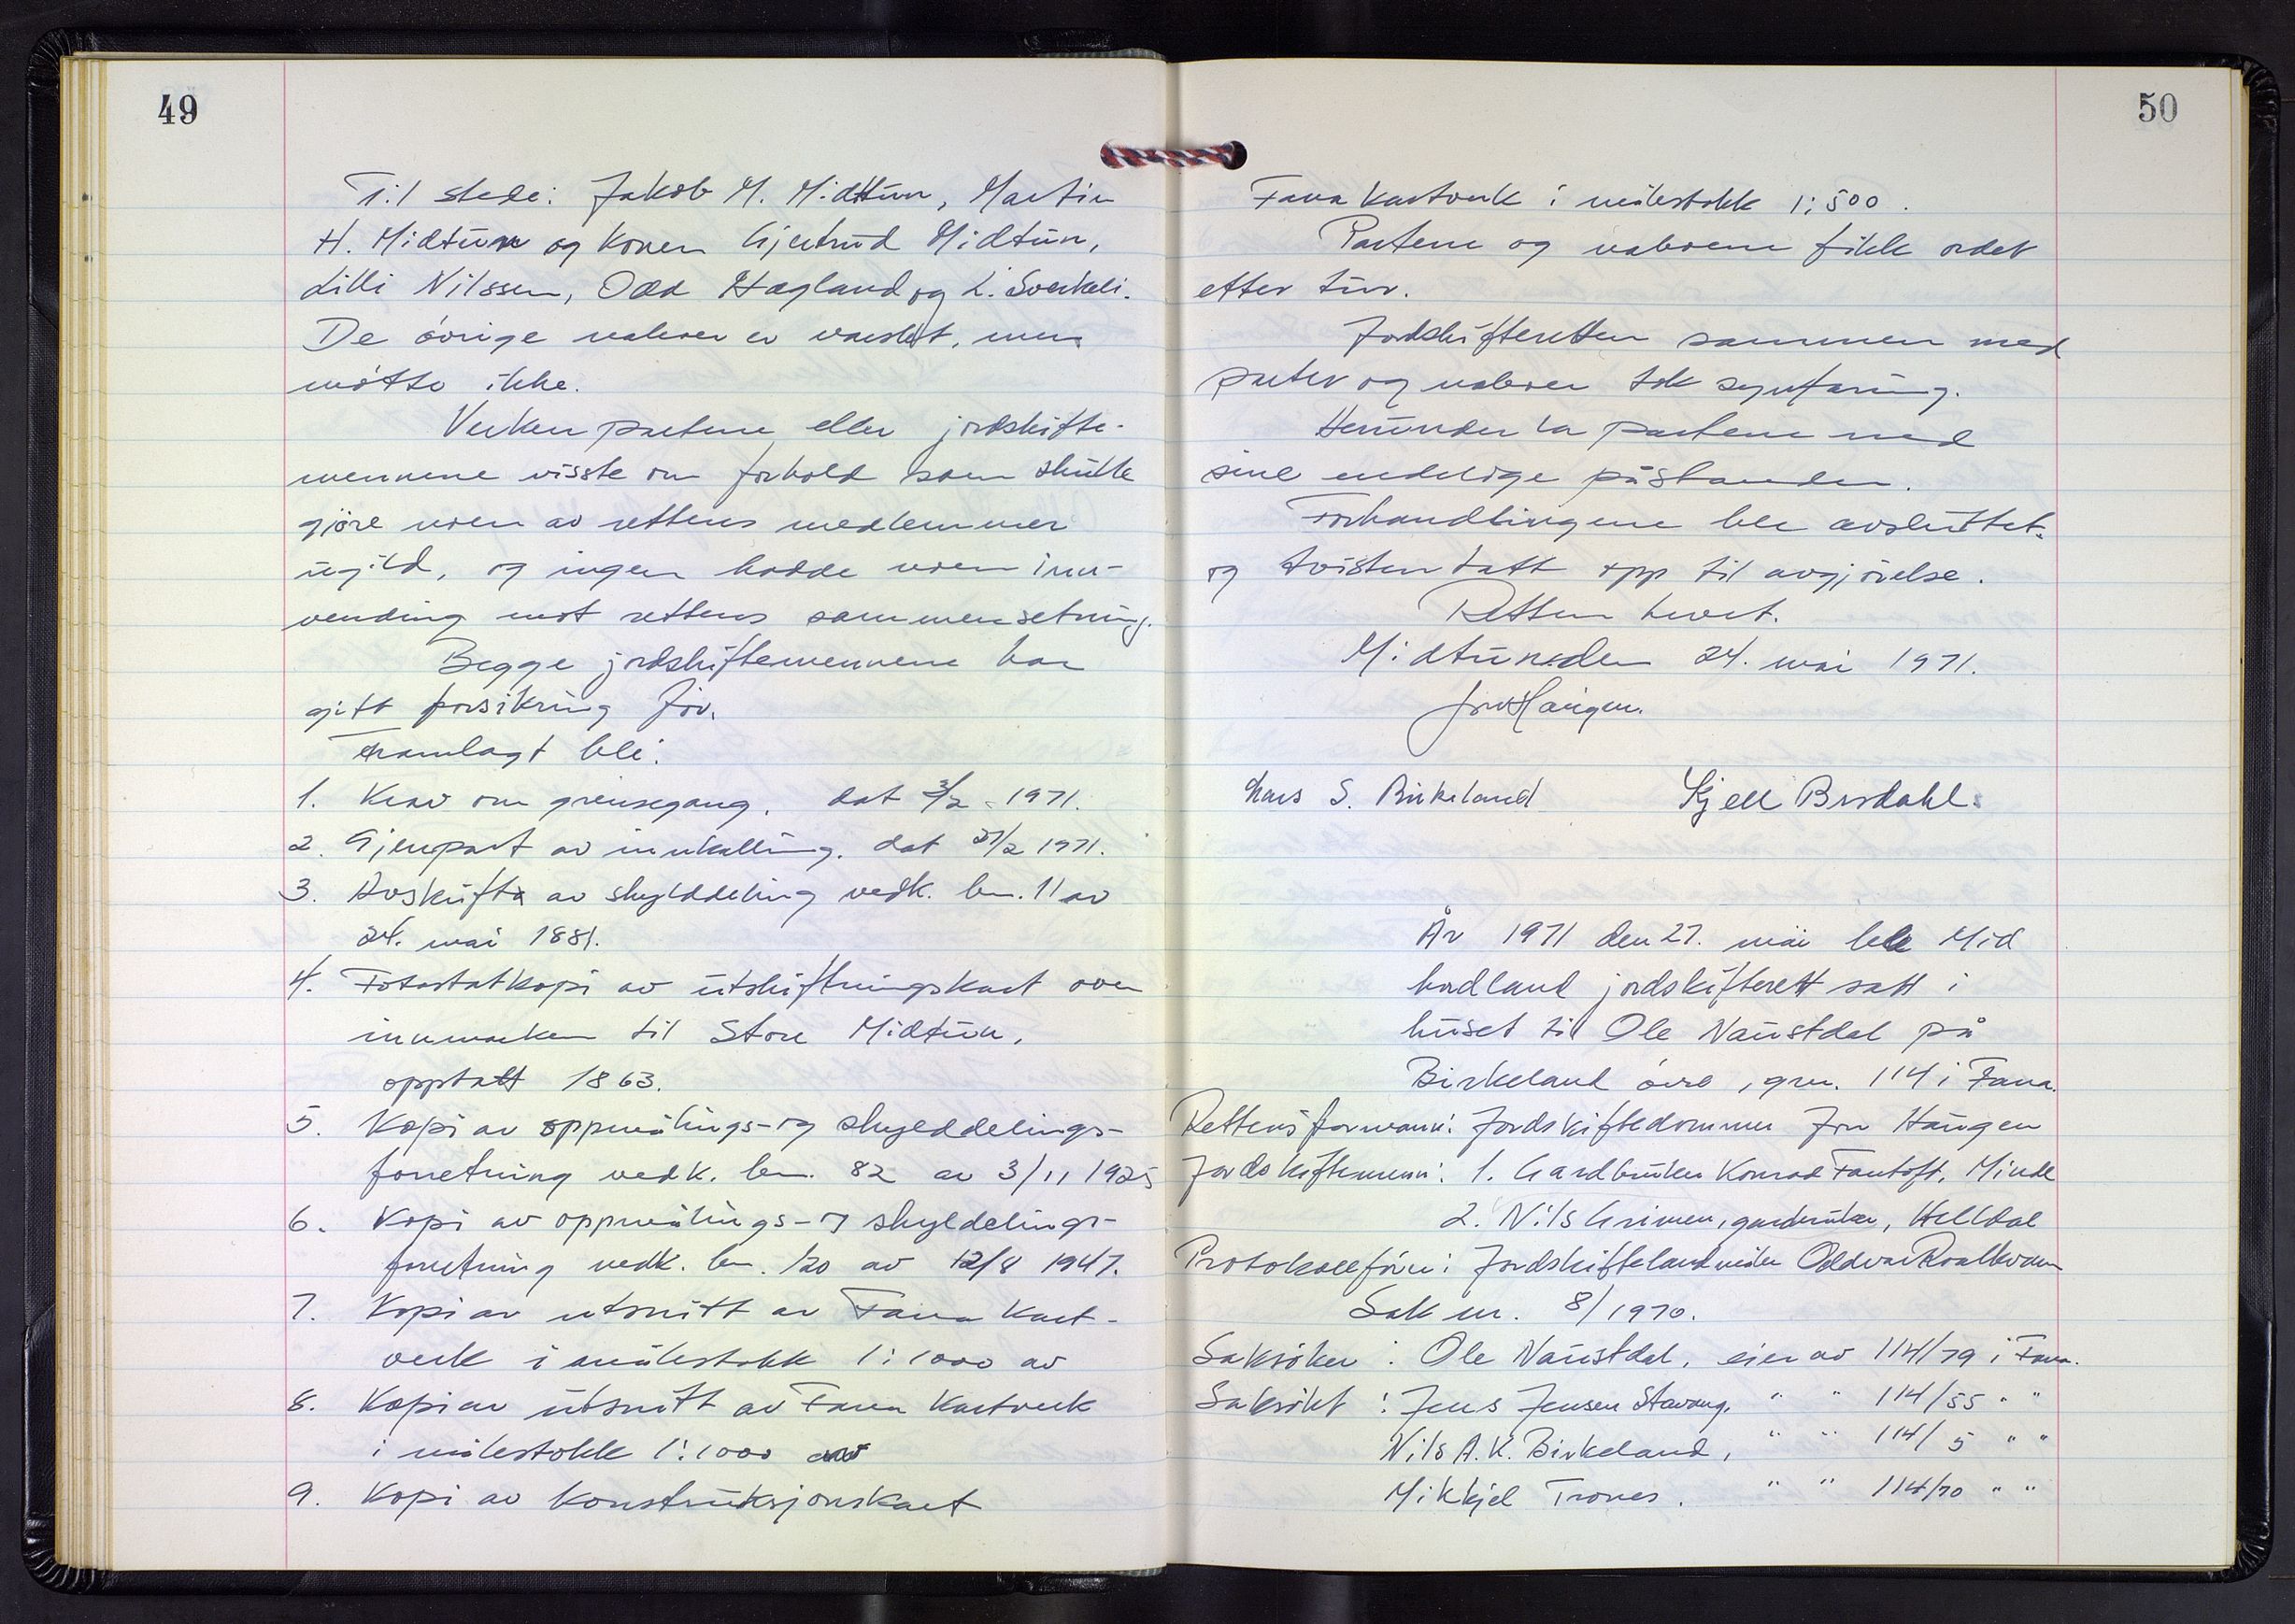 49
Til stede: Jakob M. Midttun, Martin
H. Midtun og konen Gjertrud Midtun,
Lilli Nilssen, Odd Hagland og L. Sverkeli.
De øvrige naboer er varslet, men
møtte ikke.
Verken partene eller jordskifte-
mennene visste om forhold som skulle
gjøre noen av rettens medlemmer
ugild, og ingen hadde noen inn-
vending mot rettens sammensetning.
Begge jordskiftemennene har
gitt forsikring før.
Framlagt ble:
1. Krav om grensegang, dat 3/2 - 1971.
2. Gjenpart av innkalling. dat 27/2 1971.
3. Avskrift av skylddeling vedk. bn. 11 av
24. mai 1881.
4. Fotostatkopi av utskiftningskart over
innmarken til Store Midtun,
opptatt 1863.
5. Kopi av oppmålings- og skylddelings-
forretning vedk. bn. 82 av 3/11 1925
6. Kopi av oppmålings- og skyldelings-
forretning vedk. bn. 120 av 12/8 1947.
7. Kopi av utsnitt av Fana kart-
verk i målestokk 1:1000 av
8. Kopi av utsnitt av Fana kartverk
i målestokk 1:1000 av
9. Kopi av konstruksjonskart
50
Fana kartverk i målestokk 1:500.
Partene og naboene fikk ordet
etter tur.
Jordskifteretten sammen med
parter og naboer tok synfaring.
Herunder la partene ned
sine endelige påstander.
Forhandlingene ble avsluttet
og tvisten tatt opp til avgjørelse.
Retten hevet.
Midtun den 24. mai 1971.
Jon Haugen.
Lars S. Birkeland Kjell Birdahl.
År 1971 den 27. mai ble Mid
hordland jordskifterett satt i
huset til Ole Naustdal på
Birkeland øvre, gnr. 114 i Fana.
Rettens formann: Jordskiftedommer Jon Haugen
Jordskiftemenn: 1. Gardbruker Konrad Fantoft, Minde
2. Nils Grimen, gardbruker, Helldal
Protokollfører: Jordskiftelandmåler Oddvar Roalkvam
Sak nr. 8/1970.
Saksøker: Ole Naustdal, eier av 114/79 i Fana.
Saksøkt: Jens Jensen Stavang, " " 114/55 " "
Nils A.K. Birkeland, " " 114/5 " "
Mikkjel Trones. " " 114/70 " "